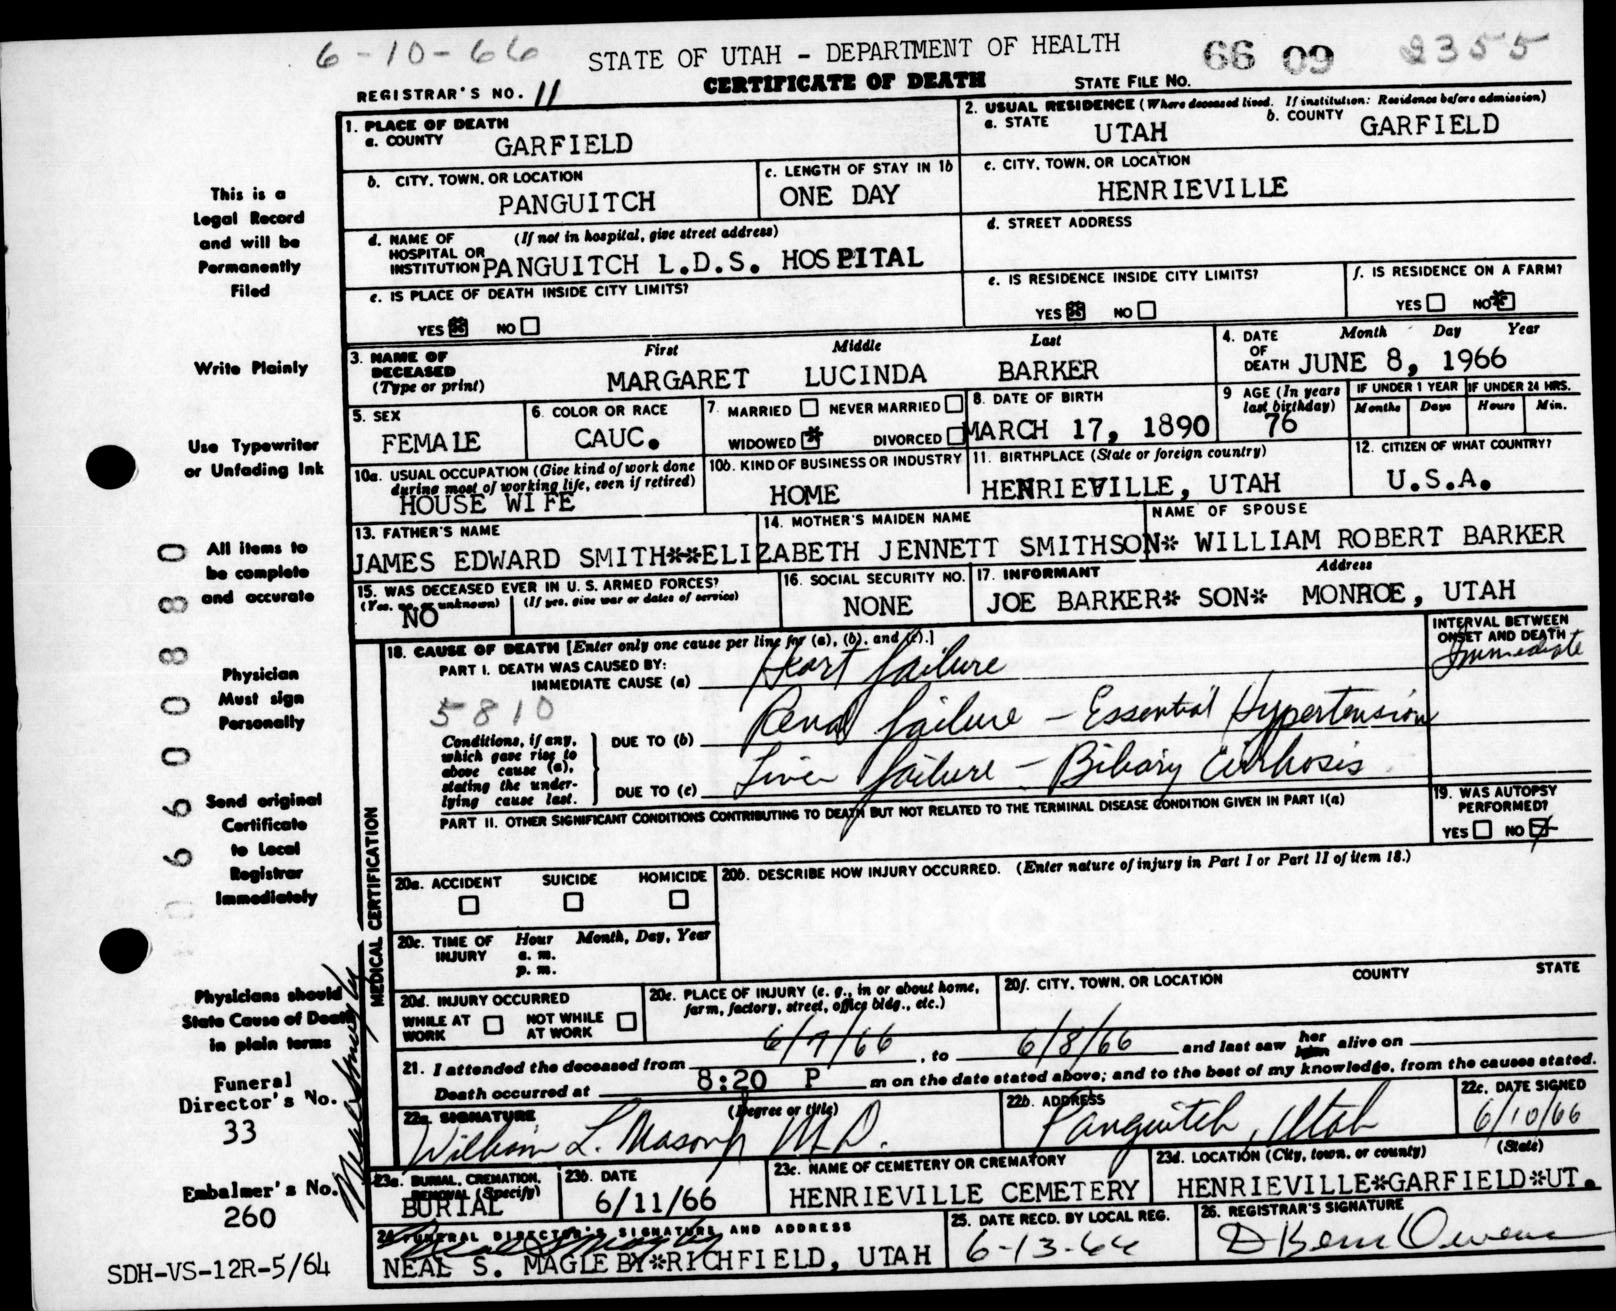 6-10-66 STATE OF UTAH - DEPARTMENT OF HEALTH 66 09 2355
REGISTRAR'S NO. 11 CERTIFICATE OF DEATH STATE FILE NO.
1. PLACE OF DEATH
a. COUNTY GARFIELD
2. USUAL RESIDENCE (Where deceased lived. If institution: Residence before admission)
a. STATE UTAH b. COUNTY GARFIELD
b. CITY, TOWN, OR LOCATION PANGUITCH
c. LENGTH OF STAY IN 1b ONE DAY
c. CITY, TOWN, OR LOCATION
HENRIEVILLE
d. NAME OF HOSPITAL OR INSTITUTION (If not in hospital, give street address)
PANGUITCH L.D.S. HOSPITAL
d. STREET ADDRESS
e. IS PLACE OF DEATH INSIDE CITY LIMITS?
YES NO
e. IS RESIDENCE INSIDE CITY LIMITS?
YES NO
f. IS RESIDENCE ON A FARM?
YES NO
3. NAME OF DECEASED (Type or print)
First Middle Last
MARGARET LUCINDA BARKER
4. DATE OF DEATH Month Day Year
JUNE 8, 1966
5. SEX
FEMALE
6. COLOR OR RACE
CAUC.
7. MARRIED NEVER MARRIED
WIDOWED DIVORCED
8. DATE OF BIRTH
MARCH 17, 1890
9 AGE (In years last birthday)
76
IF UNDER 1 YEAR IF UNDER 24 HRS.
Months Days Hours Min.
10a. USUAL OCCUPATION (Give kind of work done during most of working life, even if retired)
HOUSE WIFE
10b. KIND OF BUSINESS OR INDUSTRY
HOME
11. BIRTHPLACE (State or foreign country)
HENRIEVILLE, UTAH
12. CITIZEN OF WHAT COUNTRY?
U.S.A.
13. FATHER'S NAME 14. MOTHER'S MAIDEN NAME NAME OF SPOUSE
JAMES EDWARD SMITH**ELIZABETH JENNETT SMITHSON* WILLIAM ROBERT BARKER
15. WAS DECEASED EVER IN U. S. ARMED FORCES?
(Yes, no, or unknown) (If yes, give war or dates of service)
NO
16. SOCIAL SECURITY NO.
NONE
17. INFORMANT Address
JOE BARKER* SON* MONROE, UTAH
MEDICAL CERTIFICATION
18. CAUSE OF DEATH [Enter only one cause per line for (a), (b), and (c).]
PART I. DEATH WAS CAUSED BY:
IMMEDIATE CAUSE (a) Heart failure
INTERVAL BETWEEN ONSET AND DEATH
Immediate
5810
Conditions, if any, which gave rise to above cause (a), stating the underlying cause last.
DUE TO (b) Renal failure - Essential Hypertension
DUE TO (c) Liver failure - Biliary Cirrhosis
PART II. OTHER SIGNIFICANT CONDITIONS CONTRIBUTING TO DEATH BUT NOT RELATED TO THE TERMINAL DISEASE CONDITION GIVEN IN PART I(a)
19. WAS AUTOPSY PERFORMED?
YES NO
20a. ACCIDENT SUICIDE HOMICIDE
20b. DESCRIBE HOW INJURY OCCURRED. (Enter nature of injury in Part I or Part II of item 18.)
20c. TIME OF INJURY Hour Month, Day, Year
a. m.
p. m.
20d. INJURY OCCURRED
WHILE AT WORK NOT WHILE AT WORK
20e. PLACE OF INJURY (e. g., in or about home, farm, factory, street, office bldg., etc.)
20f. CITY, TOWN, OR LOCATION COUNTY STATE
21. I attended the deceased from 6/7/66, to 6/8/66 and last saw her him alive on
Death occurred at 8:20 P m on the date stated above; and to the best of my knowledge, from the causes stated.
22a. SIGNATURE (Degree or title)
William L. Mason Jr M.D.
22b. ADDRESS
Panguitch, Utah
22c. DATE SIGNED
6/10/66
23a. BURIAL, CREMATION, REMOVAL (Specify)
BURIAL
23b. DATE
6/11/66
23c. NAME OF CEMETERY OR CREMATORY
HENRIEVILLE CEMETERY
23d. LOCATION (City, town, or county) (State)
HENRIEVILLE*GARFIELD*UT.
24. FUNERAL DIRECTOR'S SIGNATURE AND ADDRESS
NEAL S. MAGLEBY*RICHFIELD, UTAH
25. DATE RECD. BY LOCAL REG.
6-13-66
26. REGISTRAR'S SIGNATURE
This is a
Legal Record
and will be
Permanently
Filed
Write Plainly
Use Typewriter
or Unfading Ink
All items to
be complete
and accurate
Physician
Must sign
Personally
Send original
Certificate
to Local
Registrar
Immediately
Physicians should
State Cause of Death
in plain terms
Funeral
Director's No.
33
Embalmer's No.
260
SDH-VS-12R-5/64
0 6 6 0 0 8 8 0